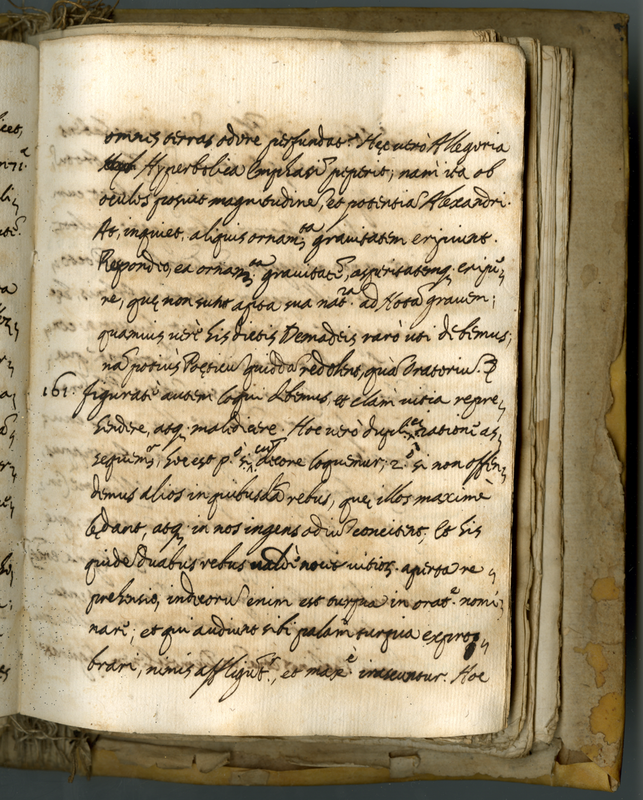 omnes terras odore perfundat. Hęc uerò Allegoria
Hyperbolica Emphasi peperit; nam ita ob
oculos posuit magnitudine, et potentia Alexandri.
At, inquiet, aliquis ornam.ta grauitatem eripiunt.
Respondeo, ea ornam.ta grauitatē, asperitatemq. eripu,
re, quę non sunt apta sua nat.ra ad Nota grauem;
quamuis uerè his dictis Demadeis rarò uti debemus;
nā potiùs Poeticū quidda redolent, quā Oratoriū.
161. figuratè autem loqui debemus et clam uitia repre,
hendere, atq. maledicere. Hoc uerò duplici ratione as,
sequemur, hoc est p.o si cum decore loquemur; 2.o si non offen,
demus alios in quibusdā rebus, quę illos maximè
lędant, atq. in nos ingens odiū concitent; Et his
quidē duabus rebus ualdè nocet uitior. aperta re,
prehensio, indecorū enim est turpia in orat.e nomi,
nari; et qui audiunt sibi palam turpia exprob,
brari, nimis affligūt., et max.è irascuntur. Hoc